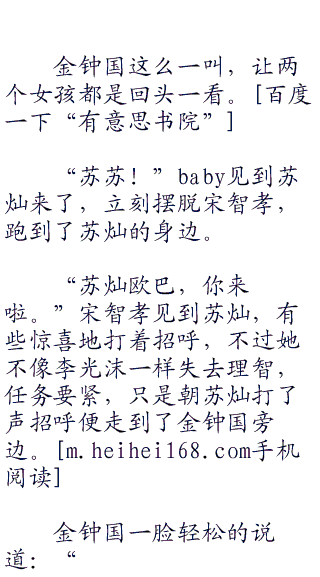 金钟国这么一叫，让两
个女孩都是回头一看。[百度
一下“有意思书院”]
“苏苏！”baby见到苏
灿来了，立刻摆脱宋智孝，
跑到了苏灿的身边。
“苏灿欧巴，你来
啦。”宋智孝见到苏灿，有
些惊喜地打着招呼，不过她
不像李光沫一样失去理智，
任务要紧，只是朝苏灿打了
声招呼便走到了金钟国旁
边。[m.heihei168.com手机
阅读]
金钟国一脸轻松的说
道：“